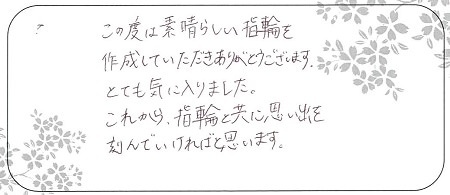 この度は素晴らしい指輪を
作成していただきありがとうございます.
とても気に入りました。
これから、指輪と共に思い出を
刻んでいければと思います。